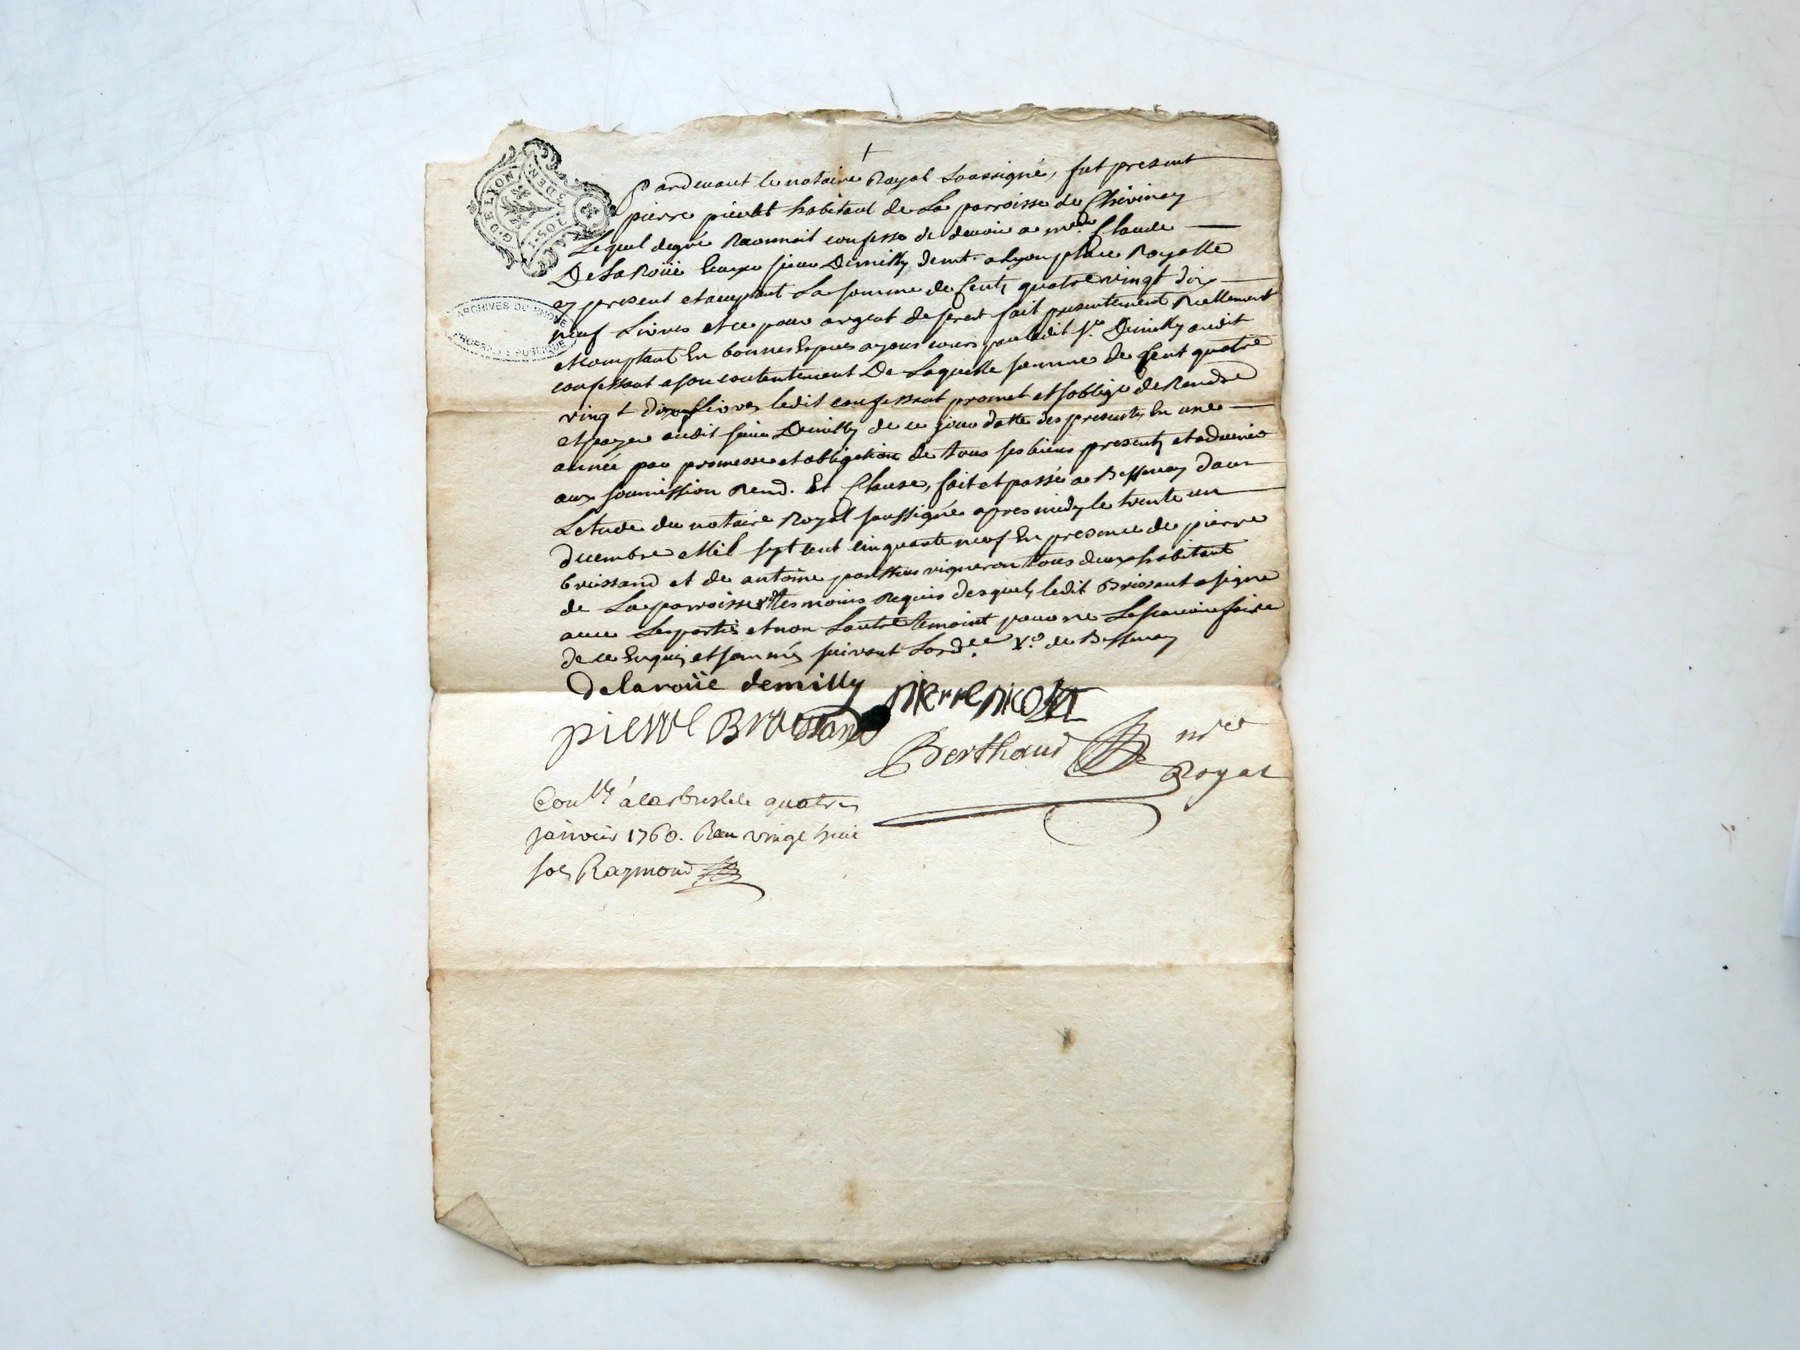 G. DE LYON
DEN.
ARCHIVES DU RHONE
Pardevant le notaire Royal Soussigné, fut present
pierre picollet habitant de La parroisse de Chevinay
Lequel degré Reconnoit confesse de devoir a me. Claude
De La Roüe Ecuyer sieur Demilly demt. a Lyon place Royalle
cy present et acceptant La somme de Cents quatre vingt dix
neuf Livres et ce pour argent de prest fait presentement Reellement
et comptant En bonnes Especes ayans cours par ledit sr. Demilly audit
confessant a son contentement De Laquelle somme de Cent quatre
vingt dix Livres ledit confessant promet et soblige de Rendre
et payer audit sieur Demilly de ce jour datte des presents En une
année par promesse et obligation de tous ses biens presents et advenir
aux soumission Rend. Et Clause, fait et passé a Bessenay dans
Letude du notaire Royal soussigné apres midy le trente un
decembre Mil sept cent cinquante neuf En presence de pierre
brissand et de antoine vigneron tous deux habitant
de La parroisse temoins Requis desquels ledit Brissant a signé
avec Les partis et non Lautre temoint pour ne Le scavoir faire
de ce Enquis et sommés suivant Lordce. de Bessenay
delaroüe demilly
pierre picollet
pierre Brissand
Berthaud nre
Royal
Conllé à larbresle le quatre
janvier 1760. Reçu vingt huit
sols Raymond